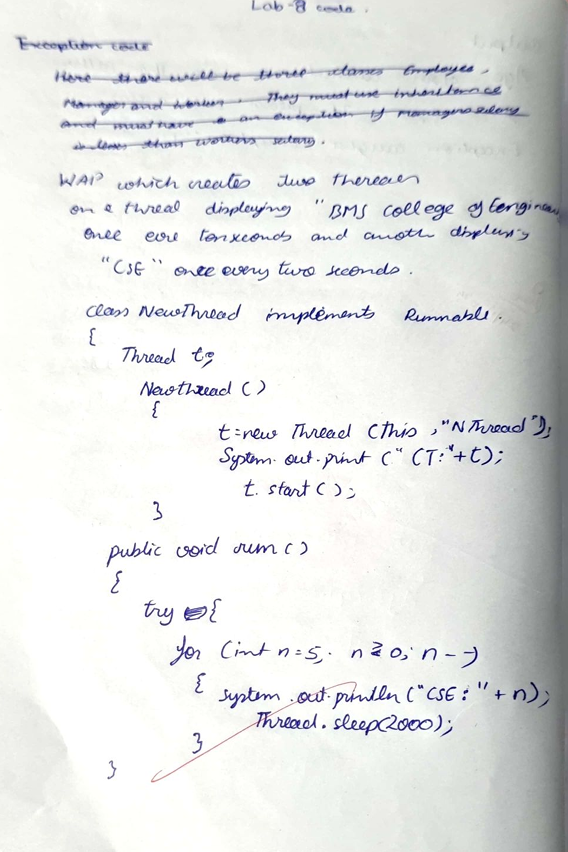 Lab-8 code.
Exception code
Here there will be three classes Employee,
Manager and worker. They must use inheritance
and must have an exception if managers salary
is less than workers salary.
WAP which creates two threads
on a thread displaying "BMS college of Engineer
once eve ten seconds and anoth displaying
"CSE" once every two seconds.
class NewThread implements Runnable.
{
Thread t;
Newthread ()
{
t=new Thread (this ,"NThread");
System.out.print (" (T:"+t);
t. start();
}
public void run ()
{
try {
for (int n=5; n≥0; n--)
{ system .out.println ("CSE: "+n);
Thread.sleep(2000);
}
}